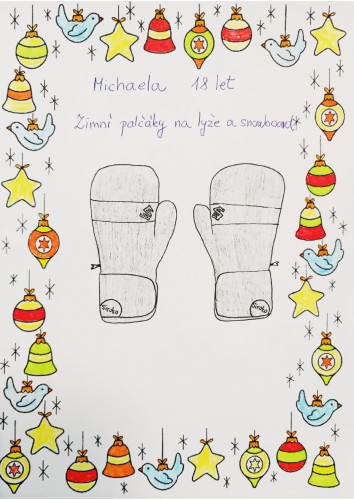 Michaela 18 let
Zimní palčáky na lyže a snowboard
Siroko
Siroko